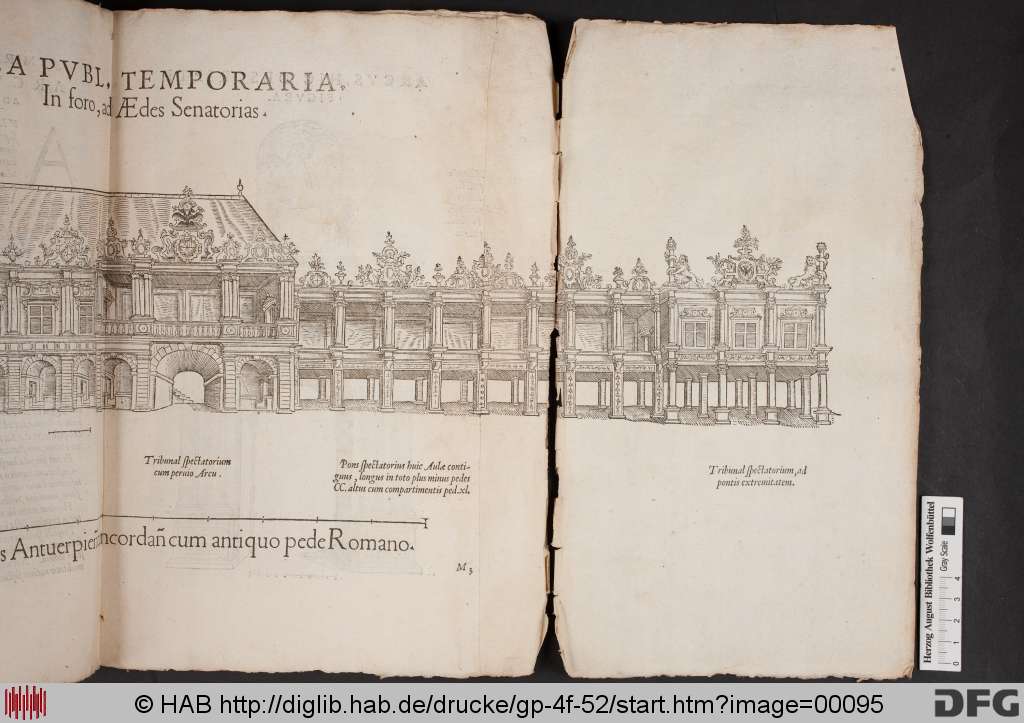 A PVBL. TEMPORARIA.
In foro, ad Ædes Senatorias.
Tribunal spectatorium
cum peruio Arcu.
Pons spectatorius huic Aulæ conti-
guus, longus in toto plus minus pedes
CC. altus cum compartimentis ped. xl.
Tribunal spectatorium, ad
pontis extremitatem.
s Antuerpień ncordań cum antiquo pede Romano.
M 3
Herzog August Bibliothek Wolfenbüttel
Gray Scale
0 1 2 3 4
© HAB http://diglib.hab.de/drucke/gp-4f-52/start.htm?image=00095
DFG